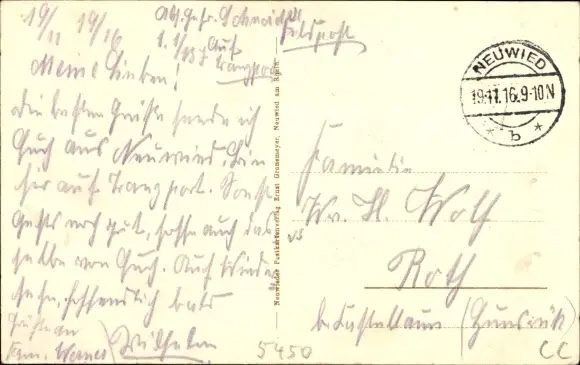 19/11 19/16
Abs. Gefr. Schneider
1. 1/83 z. Auf
Transport
Feldpost
Meine Lieben!
Die besten Grüße sende ich
Euch aus Neuwied. Bin
hier auf Transport. Sonst
gehts noch gut, hoffe auch das
selbe von Euch. Auf Wieder
sehn, hoffentlich bald
Grüße an
Fam. Werner
Wilhelm
Neuwieder Postkartenverlag Ernst Grunemeyer, Neuwied am Rhein.
NEUWIED
19.11.16.9-10N
* b *
Familie
Wr. H. Woth
Roth
b. Kastellaun (Hunsrück)
5450
CC